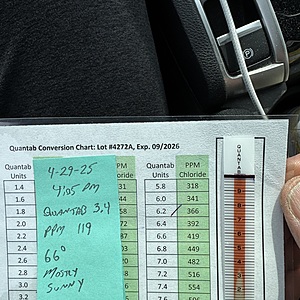 Quantab Conversion Chart: Lot #4272A, Exp. 09/2026
Quantab Units PPM Chloride Quantab Units PPM Chloride
1.4 31 5.8 318
1.6 44 6.0 341
1.8 58 6.2 366
2.0 72 6.4 392
2.2 6.6 419
2.4 6.8 449
2.6 7.0 482
2.8 7.2 516
7.4 554
7.6
4-29-25
4:05 PM
QUANTAB 3.4
PPM 119
66°
MOSTLY
SUNNY
QUANTAB
P